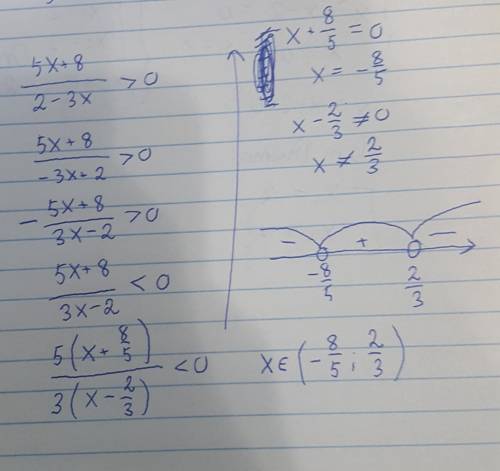 (5x+8)/(2-3x) > 0
(5x+8)/(-3x+2) > 0
-(5x+8)/(3x-2) > 0
(5x+8)/(3x-2) < 0
5(x+8/5)/3(x-2/3) < 0
x+8/5 = 0
x = -8/5
x-2/3 ≠ 0
x ≠ 2/3
- + -
-8/5 2/3
x∈(-8/5; 2/3)